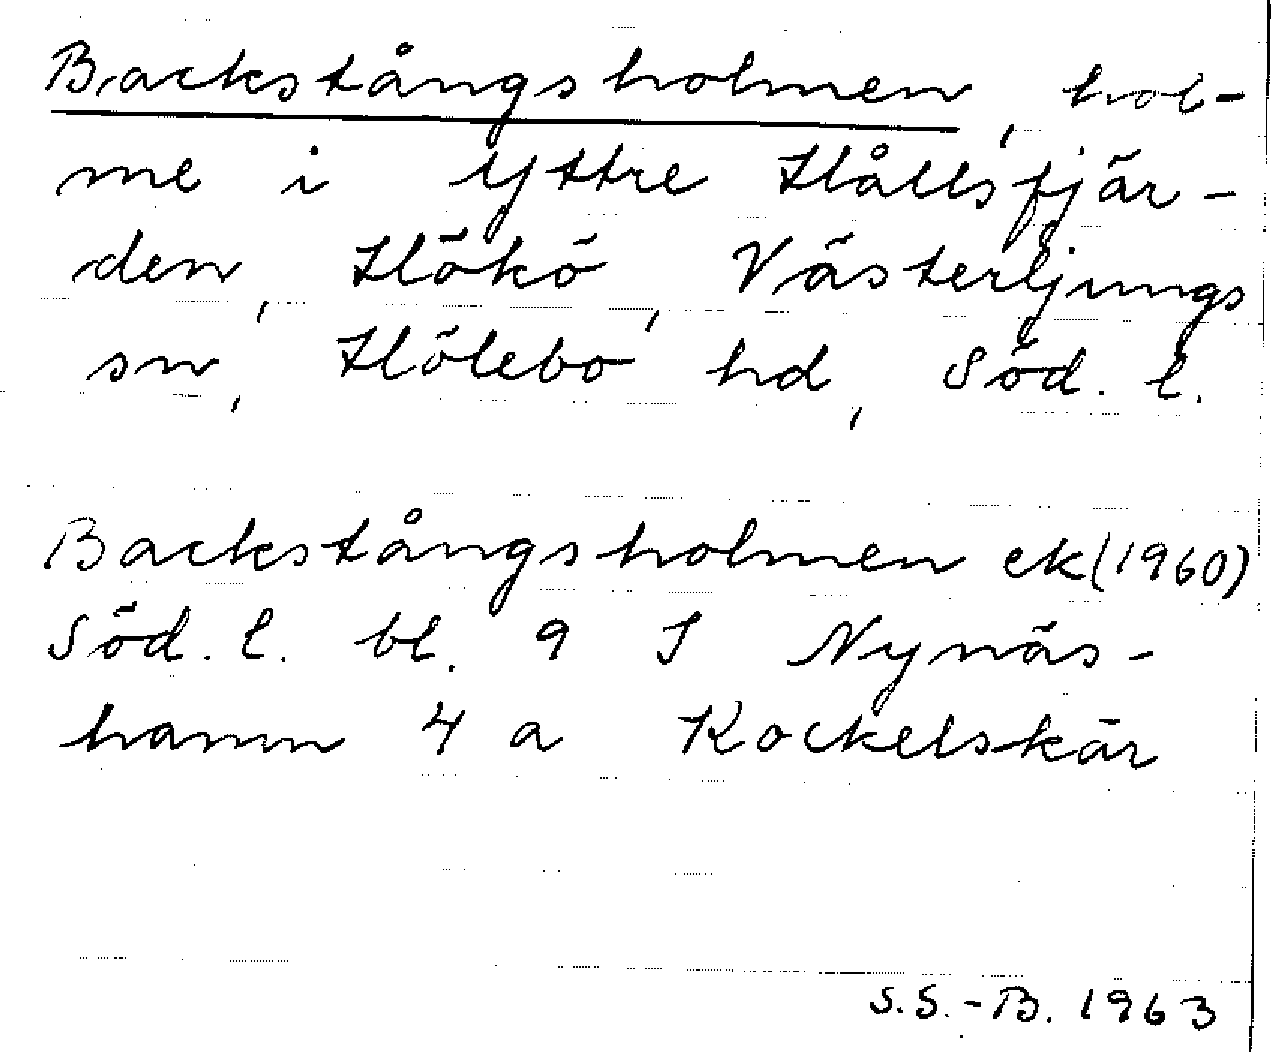 Backstångsholmen, hol-
me i Yttre Hållsfjär-
den, Hökö, Västerljungs
sn, Hölebo hd, Söd. l.
Backstångsholmen ek (1960)
Söd. l. bl. 9 I Nynäs-
hamn 4 a Kockelskär
S.S.-B. 1963